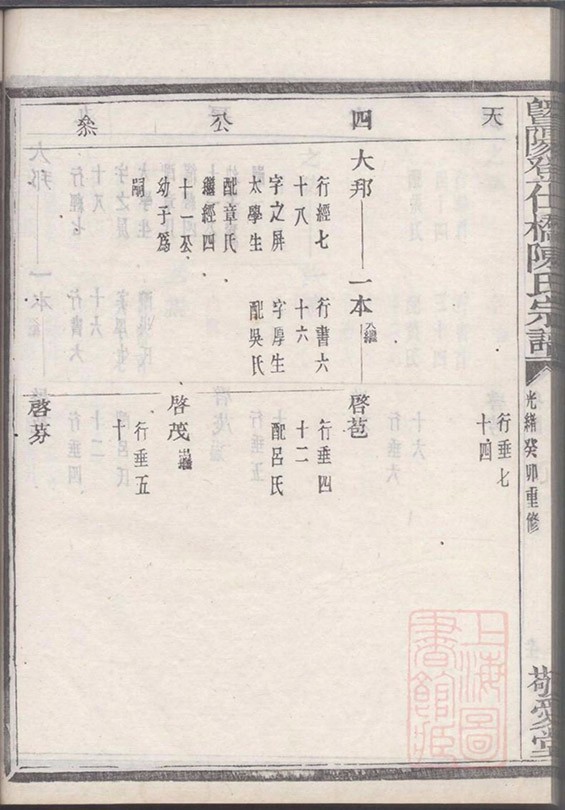 暨陽登仕橋陳氏宗譜
光緒癸卯重修
敬愛堂
天
四
公
叅
行垂七
十四
大邦
一本
入繼
啓苞
行經七
十八
字之屏
太學生
配章氏
繼經四
十一公
幼子爲
嗣
行書六
十六
字厚生
配吳氏
行垂四
十二
配呂氏
啓茂
出繼
行垂五
十
啓芬
上海圖
書館藏